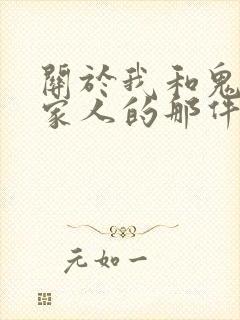 關於我和鬼
家人的那件
元如一